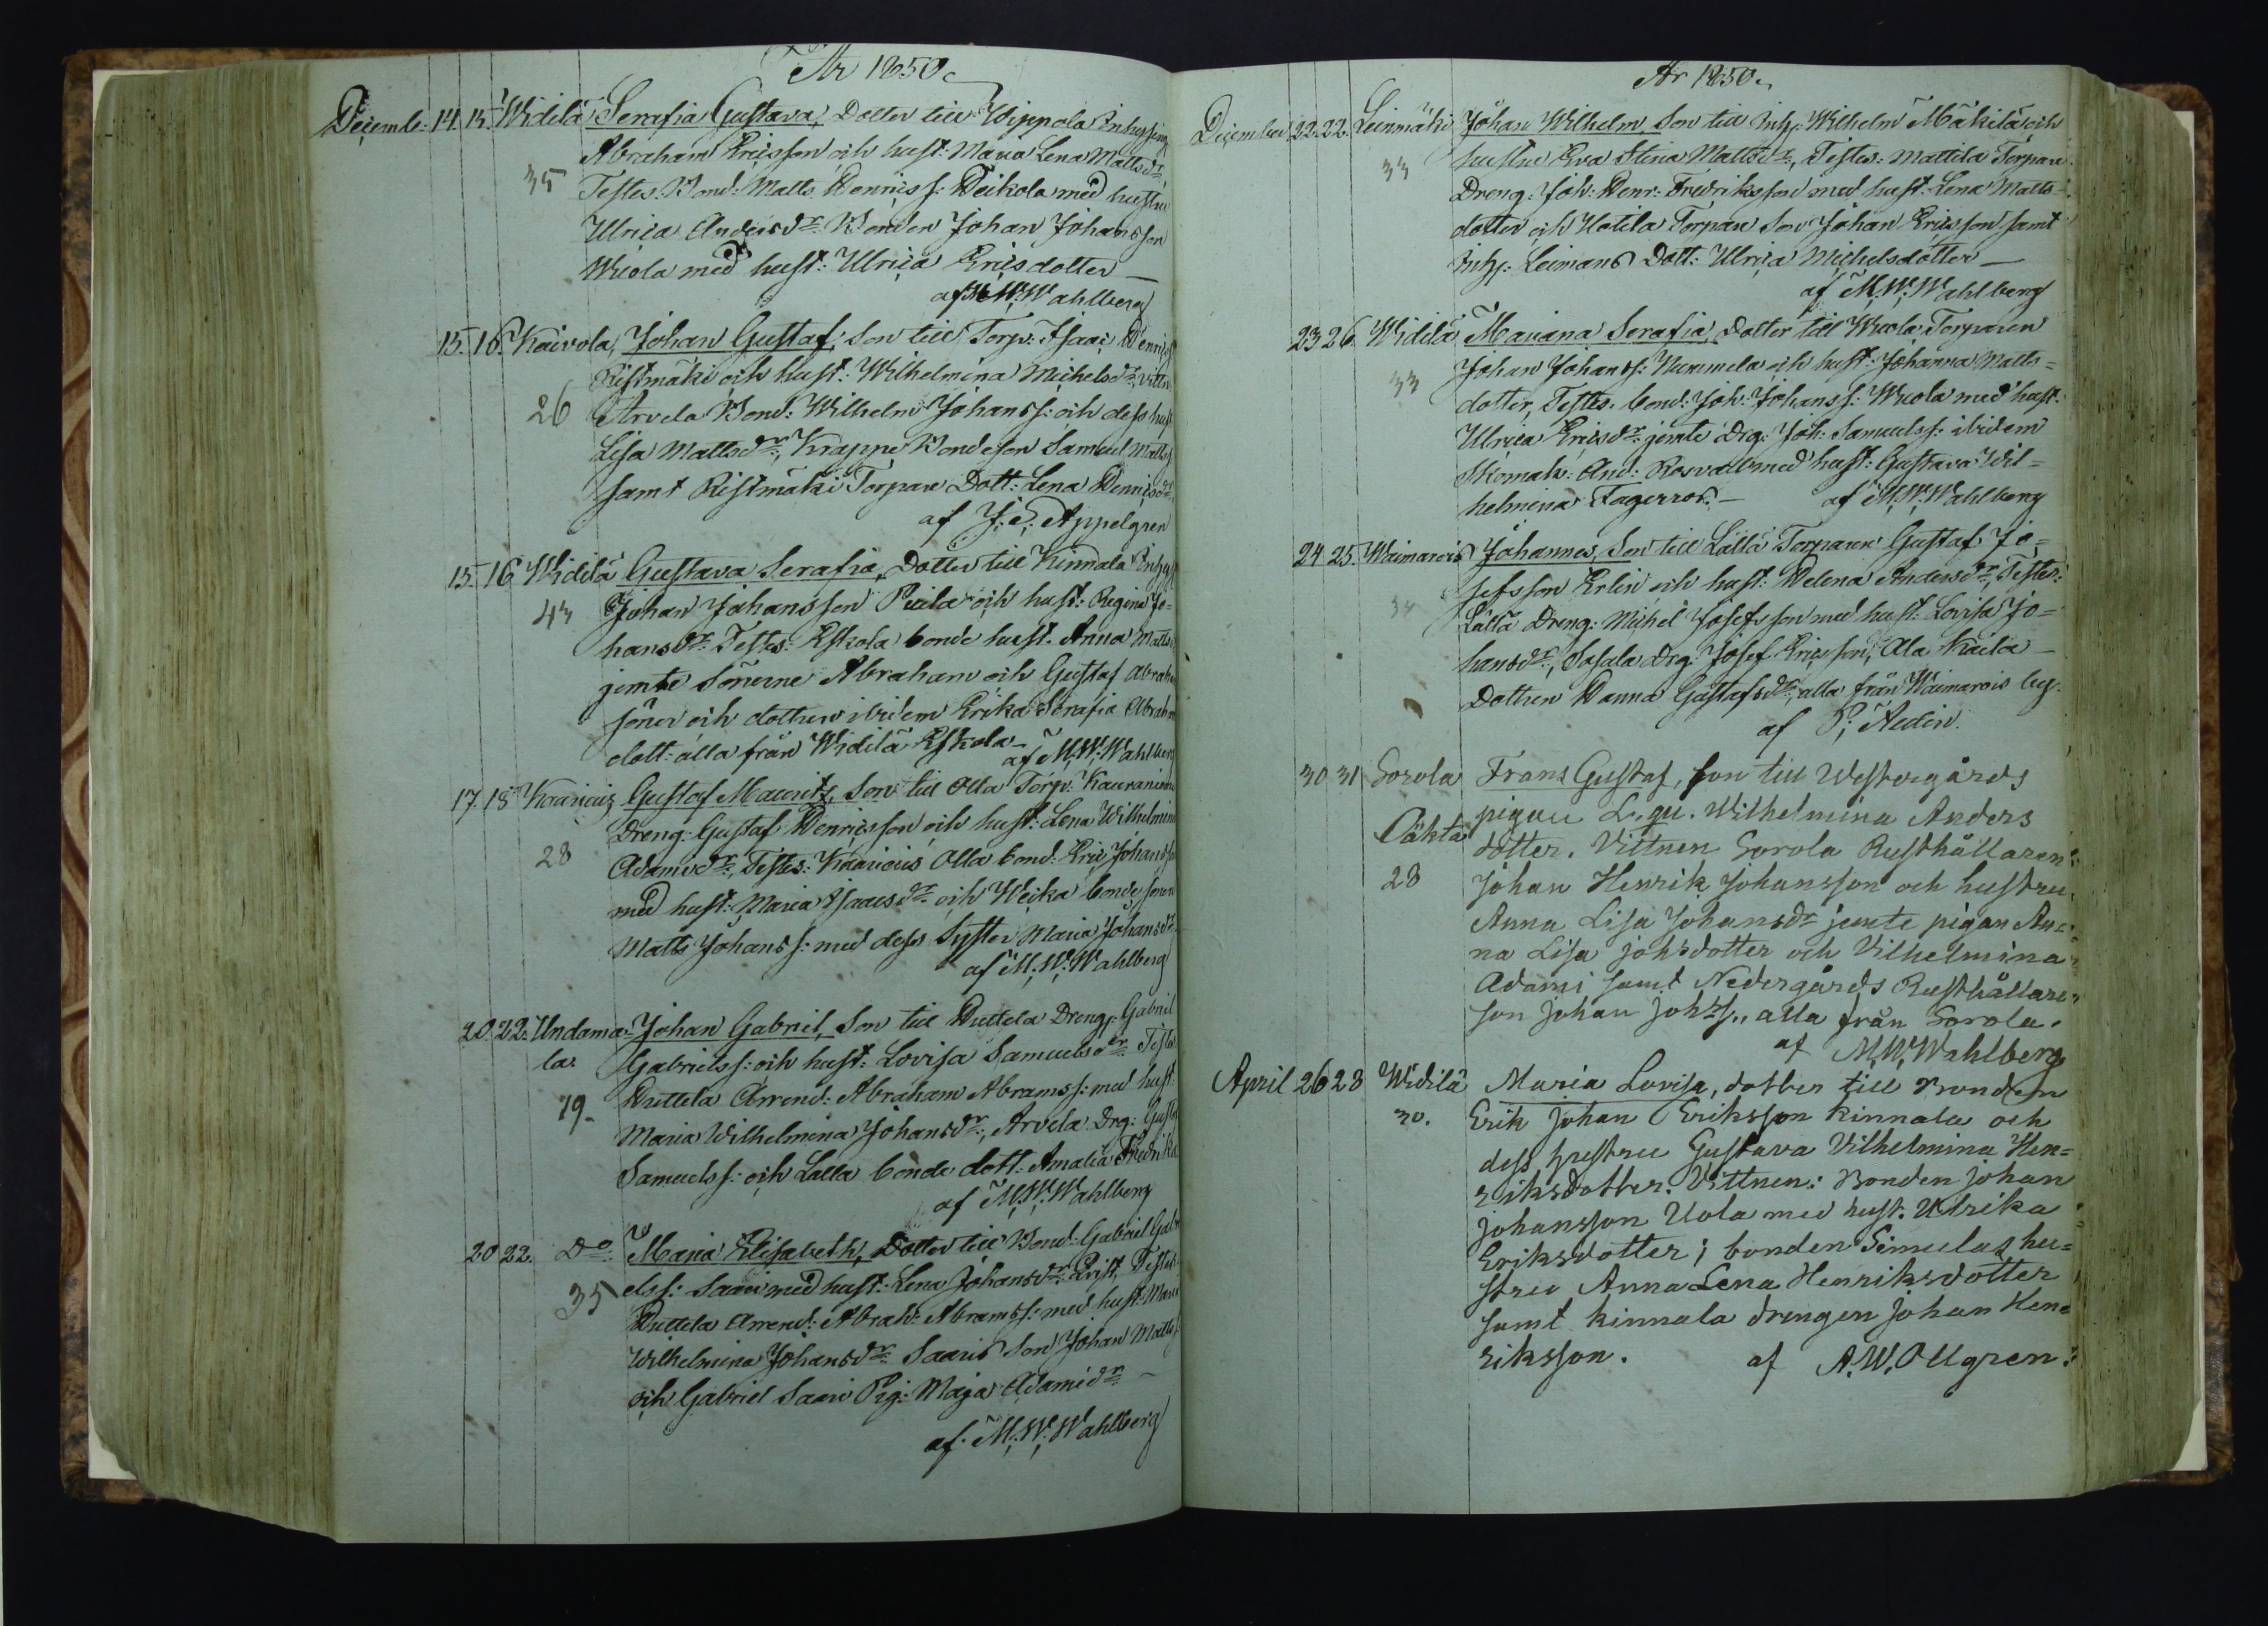 År 1850.
Decemb: 14. 15. Widilä Serafia Gustava, Dotter till Wippola Inhysing
Abraham Ericsson och hust: Maria Lena Mattsdr
35 Testes. Bond: Matts Henricss: Heikola med hustru
Ulrica Andersdr Bonden Johan Johansson
Wiola med hust: Ulrica Ericsdotter
af M. W. Wahlberg
15. 16. Kaivola, Johan Gustaf, Son till Torp: Isaac Henricss
Ristmäki och hust: Wilhelmina Michelsdr, Vittn
26 Arvela Bond: Wilhelm Johanss: och dess hust
Lisa Mattsdr, Krappe Bondeson Samuel Matts
samt Ristmäki Torpare Dott: Lena Henricsdr
af J: E: Appelgren
15. 16 Widilä Gustava Serafia, Dotter till Kinnala Inhys
43 Johan Johansson Pietila och hust: Regina Jo=
hansdr Testes: Eskola bonde hust. Anna Matts
jemte Sönerne Abraham och Gustaf Abraham
söner och dottren ibidem Erika Serafia Abraham
dott: alla från Widilä Eskola
af M. W. Wahlberg
17. 18 Gustaf Mauritz, Son till Olla Torp: Kauraniemi
Dreng: Gustaf Henricsson och hust: Lena Wilhelmina
28 Adamsdr, Testes: Olla bond: Eric Johansson
med hust: Maria Isaacsdr och Weika bondesonen
Matts Johanss: med dess Syster Maria Johansdr
af M. W. Wahlberg
20. 22. Undama= Johan Gabriel, Son till Huttela Dreng: Gabriel
la. Gabrielss: och hust: Lovisa Samuelsdr Testes
19. Huttela Arrend: Abraham Abramss: med hust
Maria Wilhelmina Johansdr, Arvela Drg: Gustaf
Samuelss: och Lälla bonde dott: Amalia Fredrika
af M. W. Wahlberg
20 22. Do Maria Elisabeth, Dotter till Bond: Gabriel Gabri
elss: Saari med hust: Lena Johansdr Testes
35 Huttela Arrend: Abrah: Abramss: med hust: Maria
Wilhelmina Johansdr Saaris Son Johan Matts
och Gabriel Saari Pig: Maja Adamsdr
af: M. W. Wahlberg
År 1850.
December 22. 22. Leinmäki Johan Wilhelm, Son till Inh: Wilhelm Mäkilä och
33 hustru Eva Stina Mattsdr, Testes: Mattila Torpare
Dreng: Joh: Henr: Fredriksson med hust. Lena Matts=
dotter och Hotila Torpare Son Johan Ericsson samt
Inh: Leimans Dott: Ulrica Michelsdotter
af M. W. Wahlberg
23 26. Widilä Mariana Serafia, Dotter till Wiola Torparen
33 Johan Johanss: Nummela och hust: Johanna Matts=
dotter, Testes. bond: Joh: Johanss: Wiola med hust:
Ulrica Ericsdr jemte Drg: Joh: Samuelss: ibidem
Skomak: And: Rosvall med hust: Gustava Wil=
helmina Fagerros. af M. W. Wahlberg
24 25. Waimarois Johannes, Son till Lälla Torparen Gustaf Jo=
sefsson Erlin och hust: Helena Andersdr, Testes:
Lälla Dreng: Michel Josefsson med hust: Lovisa Jo=
hansdr, Sasala Drg: Josef Ericsson, Ala Kaila
Dottren Hanna Gustafsdr, alla från Waimarois by.
af P. Hedin.
30 31 Sorola Frans Gustaf, son till Westergårds
Lähtä pigan L. qv. Wilhelmina Anders
dotter. Vittnen Sorola Rusthållaren
28 Johan Henrik Johansson och hustru
Anna Lisa Johansdr jemte pigan An=
na Lisa Johsdotter och Vilhelmina
Adami samt Nedergårds Rusthållare
son Johan Johss., alla från Sorola.
af M. W. Wahlberg
April 26 28 Widilä Maria Lovisa, dotter till Bonden
30. Erik Johan Eriksson Kinnala och
dess hustru Gustava Vilhelmina Hen=
riksdotter. Vittnen: Bonden Johan
Johansson Uola med hust. Ulrika
Eriksdotter; bonden Simulas hu=
stru Anna Lena Henriksdotter
samt Kinnala drengen Johan Hen=
riksson. af A. W. Ollgren.